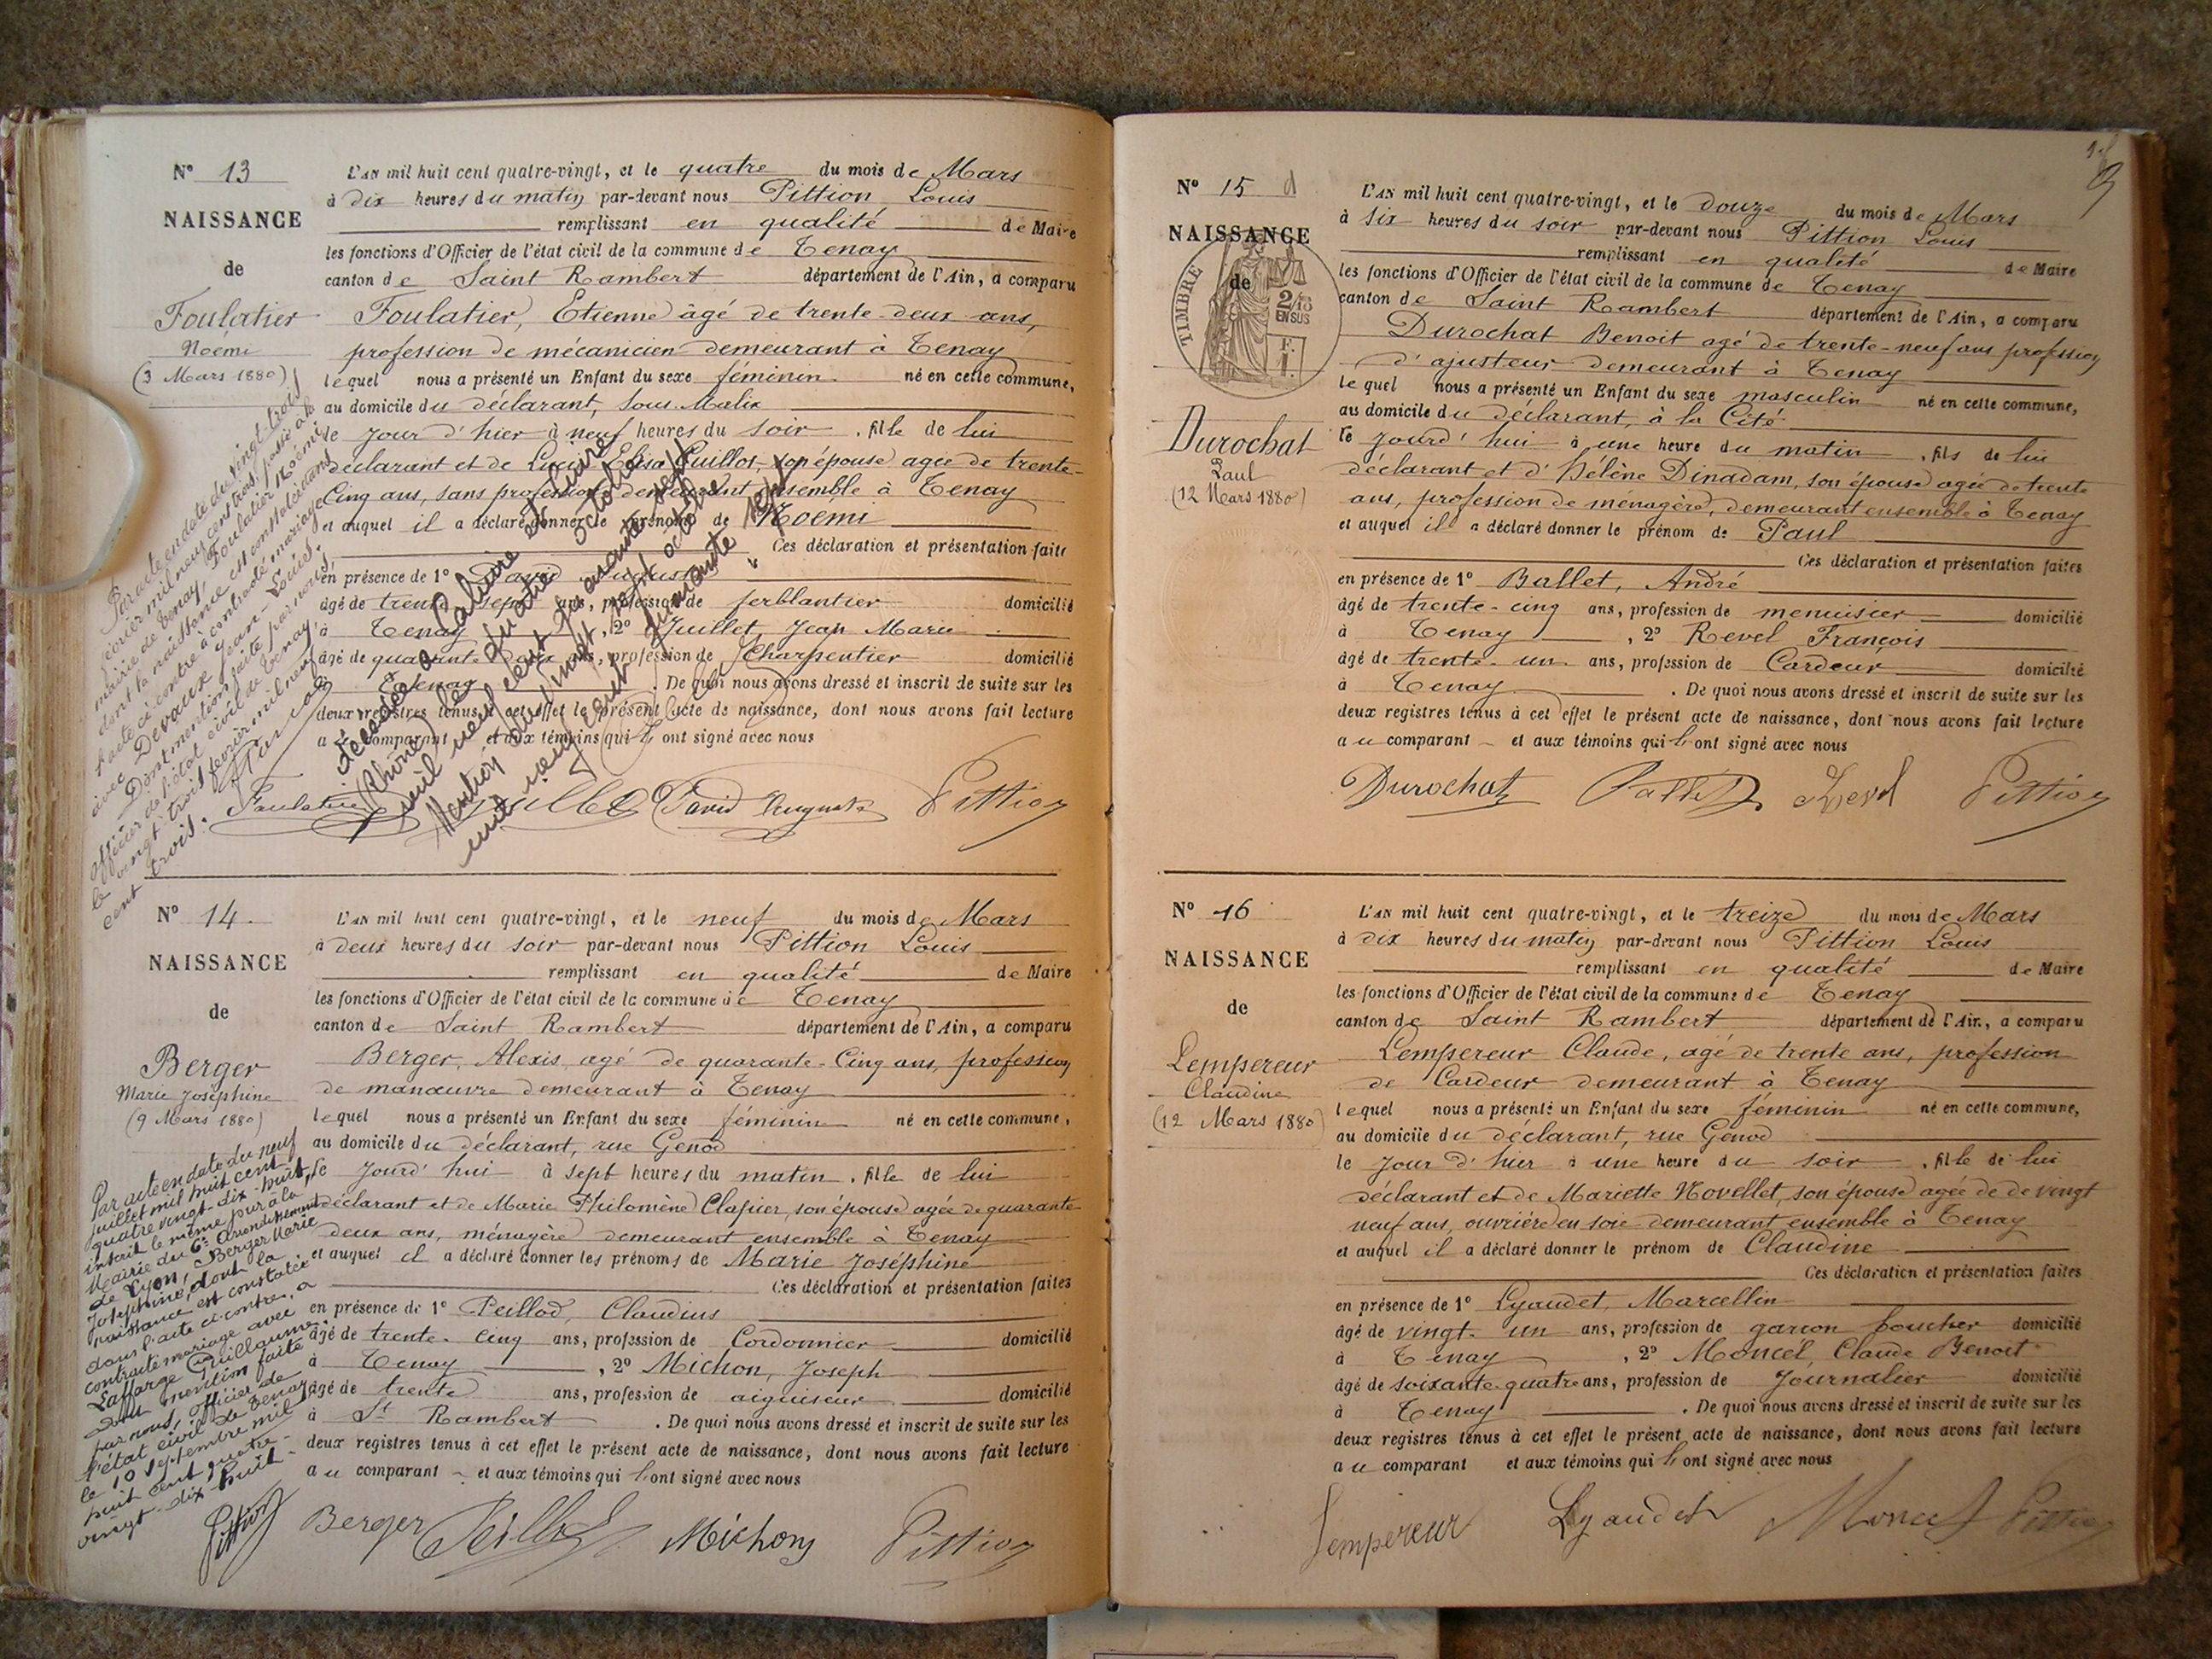 N° 13
NAISSANCE
de
Foulatier
Noémi
(3 Mars 1880)
Par acte en date du vingt trois
février mil neuf cent trois, passé à la
mairie de Tenay, Foulatier Noémi
dont la naissance est constatée dans
l'acte ci-contre à contracté mariage
avec Devaux Jean-Louis.
Dont mention faite par nous,
officier de l'état civil de Tenay,
le vingt-trois février mil neuf
cent trois.
L'AN mil huit cent quatre-vingt, et le quatre du mois de Mars
à dix heures du matin par-devant nous Pittion Louis
remplissant en qualité de Maire
les fonctions d'Officier de l'état civil de la commune de Tenay
canton de Saint Rambert département de l'Ain, a comparu
Foulatier, Etienne âgé de trente-deux ans,
profession de mécanicien demeurant à Tenay
lequel nous a présenté un Enfant du sexe féminin né en cette commune,
au domicile du déclarant, Sous-Malix
le jour d'hier à neuf heures du soir, fille de lui
déclarant et de Lucie Elisa Guillot, son épouse agée de trente-
Cinq ans, sans profession demeurant ensemble à Tenay
et auquel il a déclaré donner le prénom de Noemi
Ces déclaration et présentation faite
en présence de 1° David Auguste
âgé de trente sept ans, profession de ferblantier domicilié
à Tenay, 2° Juillet, Jean Marie
âgé de quarante deux ans, profession de Charpentier domicilié
à Tenay. De quoi nous avons dressé et inscrit de suite sur les
deux registres tenus à cet effet le présent acte de naissance, dont nous avons fait lecture
au comparant et aux témoins qui ont signé avec nous
décédée à Caluire et Cuire
(Rhône) le quatre octobre
mil neuf cent quarante neuf
Mention du vingt sept octobre
mil neuf cent quarante neuf
Foulatier Juillet David Auguste Pittion
N° 14
NAISSANCE
de
Berger
Marie Joséphine
(9 Mars 1880)
Par acte en date du neuf
juillet mil huit cent
quatre vingt-dix-huit,
inscrit le même jour à la
Mairie du 6e Arrondissement
de Lyon, Berger Marie
Joséphine, dont la
naissance est constatée
dans l'acte ci-contre, a
contracté mariage avec
Laffarge Guillaume.
Dont mention faite
par nous, officier de
l'état civil de Tenay
le 10 septembre mil
huit cent quatre-
vingt-dix-huit.
Pittion
L'AN mil huit cent quatre-vingt, et le neuf du mois de Mars
à deux heures du soir par-devant nous Pittion Louis
remplissant en qualité de Maire
les fonctions d'Officier de l'état civil de la commune de Tenay
canton de Saint Rambert département de l'Ain, a comparu
Berger, Alexis, agé de quarante-Cinq ans, profession
de manœuvre demeurant à Tenay
lequel nous a présenté un Enfant du sexe féminin né en cette commune,
au domicile du déclarant, rue Genod
le jourd'hui à sept heures du matin, fille de lui
déclarant et de Marie Philomène Clapier, son épouse agée de quarante-
deux ans, ménagère demeurant ensemble à Tenay
et auquel il a déclaré donner les prénoms de Marie Joséphine
Ces déclaration et présentation faites
en présence de 1° Peillod, Claudius
âgé de trente-cinq ans, profession de Cordonnier domicilié
à Tenay, 2° Michon, Joseph
âgé de trente ans, profession de aiguiseur domicilié
à St Rambert. De quoi nous avons dressé et inscrit de suite sur les
deux registres tenus à cet effet le présent acte de naissance, dont nous avons fait lecture
au comparant et aux témoins qui ont signé avec nous
Berger Peillod Michon Pittion
N° 15
NAISSANCE
de
TIMBRE
2/10
EN SUS
Durochat
Paul
(12 Mars 1880)
L'AN mil huit cent quatre-vingt, et le douze du mois de Mars
à six heures du soir par-devant nous Pittion Louis
remplissant en qualité de Maire
les fonctions d'Officier de l'état civil de la commune de Tenay
canton de Saint Rambert département de l'Ain, a comparu
Durochat Benoit agé de trente-neuf ans profession
d'ajusteur demeurant à Tenay
lequel nous a présenté un Enfant du sexe masculin né en cette commune,
au domicile du déclarant, à la Cité
le jourd'hui à une heure du matin, fils de lui
déclarant et d'Hélène Dinadam, son épouse agée de trente
ans, profession de ménagère, demeurant ensemble à Tenay
et auquel il a déclaré donner le prénom de Paul
Ces déclaration et présentation faites
en présence de 1° Ballet, André
âgé de trente-cinq ans, profession de menuisier domicilié
à Tenay, 2° Revel François
âgé de trente-un ans, profession de Cardeur domicilié
à Tenay. De quoi nous avons dressé et inscrit de suite sur les
deux registres tenus à cet effet le présent acte de naissance, dont nous avons fait lecture
au comparant et aux témoins qui ont signé avec nous
Durochat Ballet Revel Pittion
N° 16
NAISSANCE
de
Lempereur
Claudine
(12 Mars 1880)
L'AN mil huit cent quatre-vingt, et le treize du mois de Mars
à dix heures du matin par-devant nous Pittion Louis
remplissant en qualité de Maire
les fonctions d'Officier de l'état civil de la commune de Tenay
canton de Saint Rambert département de l'Ain, a comparu
Lempereur Claude, agé de trente ans, profession
de Cardeur demeurant à Tenay
lequel nous a présenté un Enfant du sexe féminin né en cette commune,
au domicile du déclarant, rue Genod
le jour d'hier à une heure du soir, fille de lui
déclarant et de Mariette Novellet, son épouse agée de de vingt
neuf ans, ouvrière en soie demeurant ensemble à Tenay
et auquel il a déclaré donner le prénom de Claudine
Ces déclaration et présentation faites
en présence de 1° Lyaudet, Marcellin
âgé de vingt-un ans, profession de garcon boucher domicilié
à Tenay, 2° Moncel, Claude Benoit
âgé de soixante-quatre ans, profession de Journalier domicilié
à Tenay. De quoi nous avons dressé et inscrit de suite sur les
deux registres tenus à cet effet le présent acte de naissance, dont nous avons fait lecture
au comparant et aux témoins qui ont signé avec nous
Lempereur Lyaudet Moncel Pittion